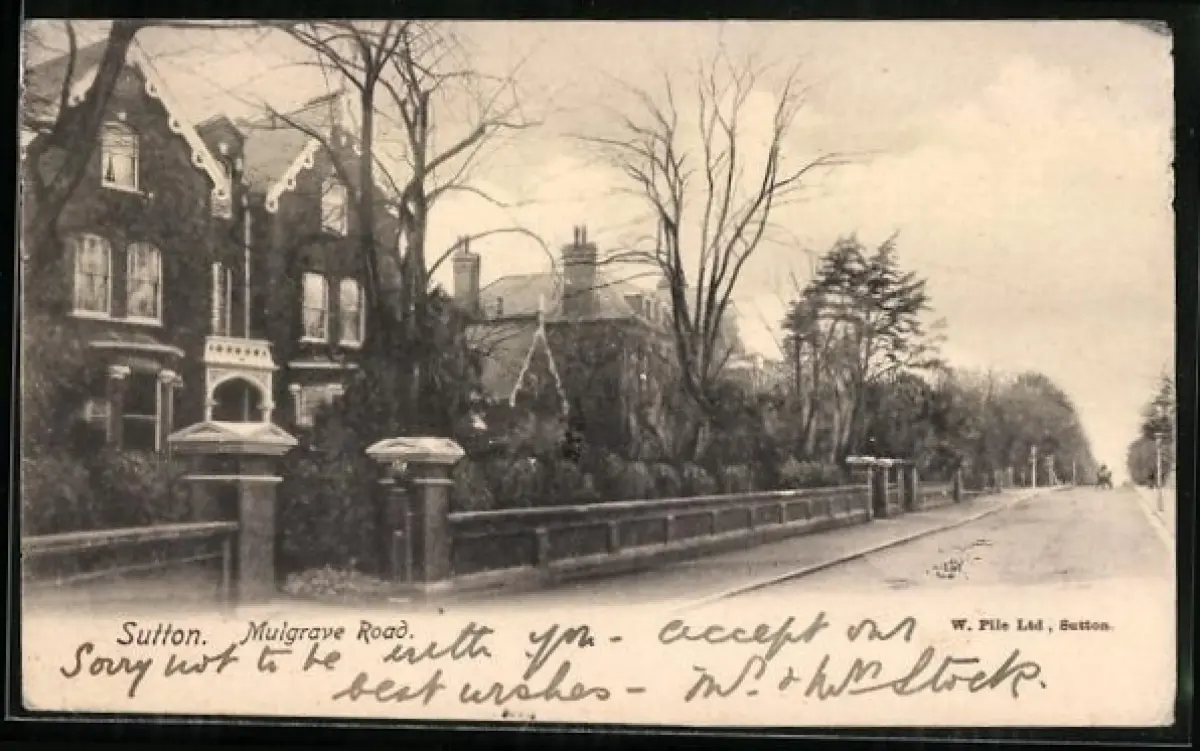 Sutton. Mulgrave Road.
W. Pile Ltd, Sutton.
Sorry not to be with you - accept our
best wishes - Mr. & Mrs. Stock.